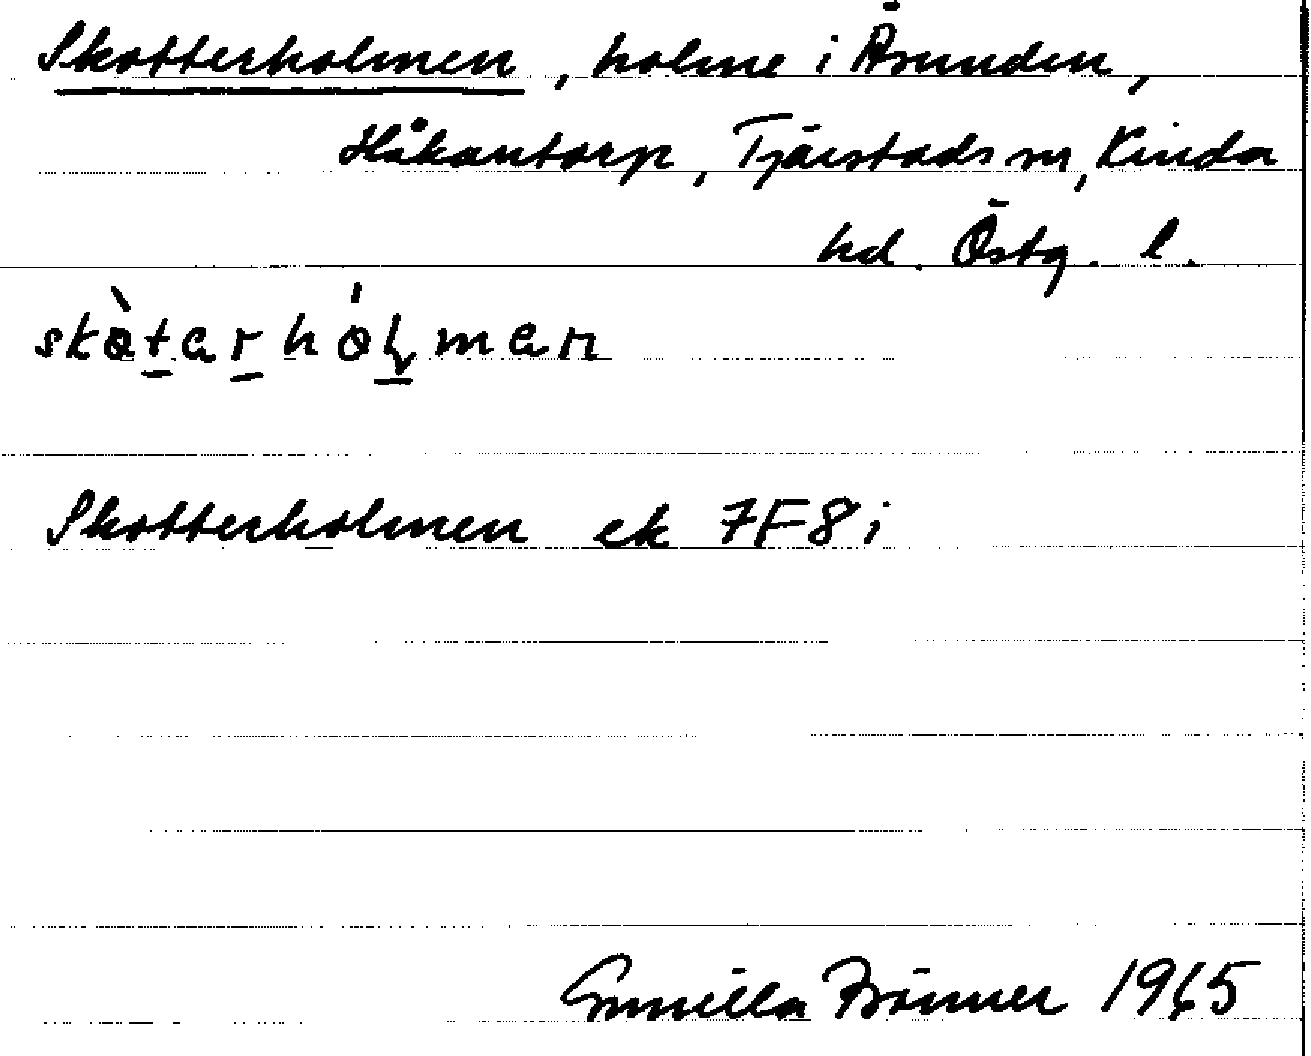 Skotterholmen, holme i Åsunden,
Håkantorp, Tjärstads sn, Kinda
hd. Östg. l.
skòtarhólman
Skotterholmen ek 7F8i
Gunilla 1965